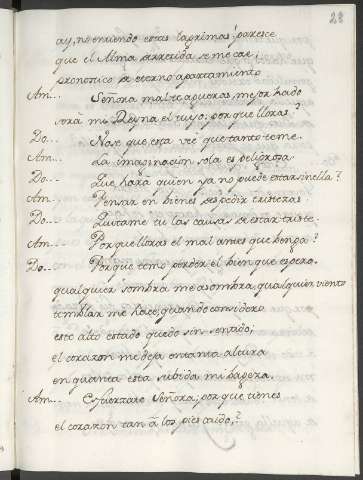 28
ay, no entiendo estas lagrimas! parece
que el Alma derretida se me cae,
pronostico de eterno apartamiento
Am... Señora mal te agueras, mejor hado
será mi Reyna el tuyo: por que lloras?
Do... No se que esta vez que tanto teme.
Am... La imaginacion sola es peligrosa.
Do... Que hará quien ya no puede estar sin ella?
Am... Pensar en bienes, despedir tristezas.
Do... Quitame tu las causas de estar triste.
Am... Por que lloras el mal antes que benga?
Do... Por que temo perder el bien que espero.
qualquier sombra me asombra, qualquier viento
temblar me hace, quando considero
este alto estado quedo sin sentido;
el corazon me deja en tanta altura
en quanta esta subida mi bageza.
Am... Esfuerzate Señora; por que tienes
el corazon tan á los pies caido,?